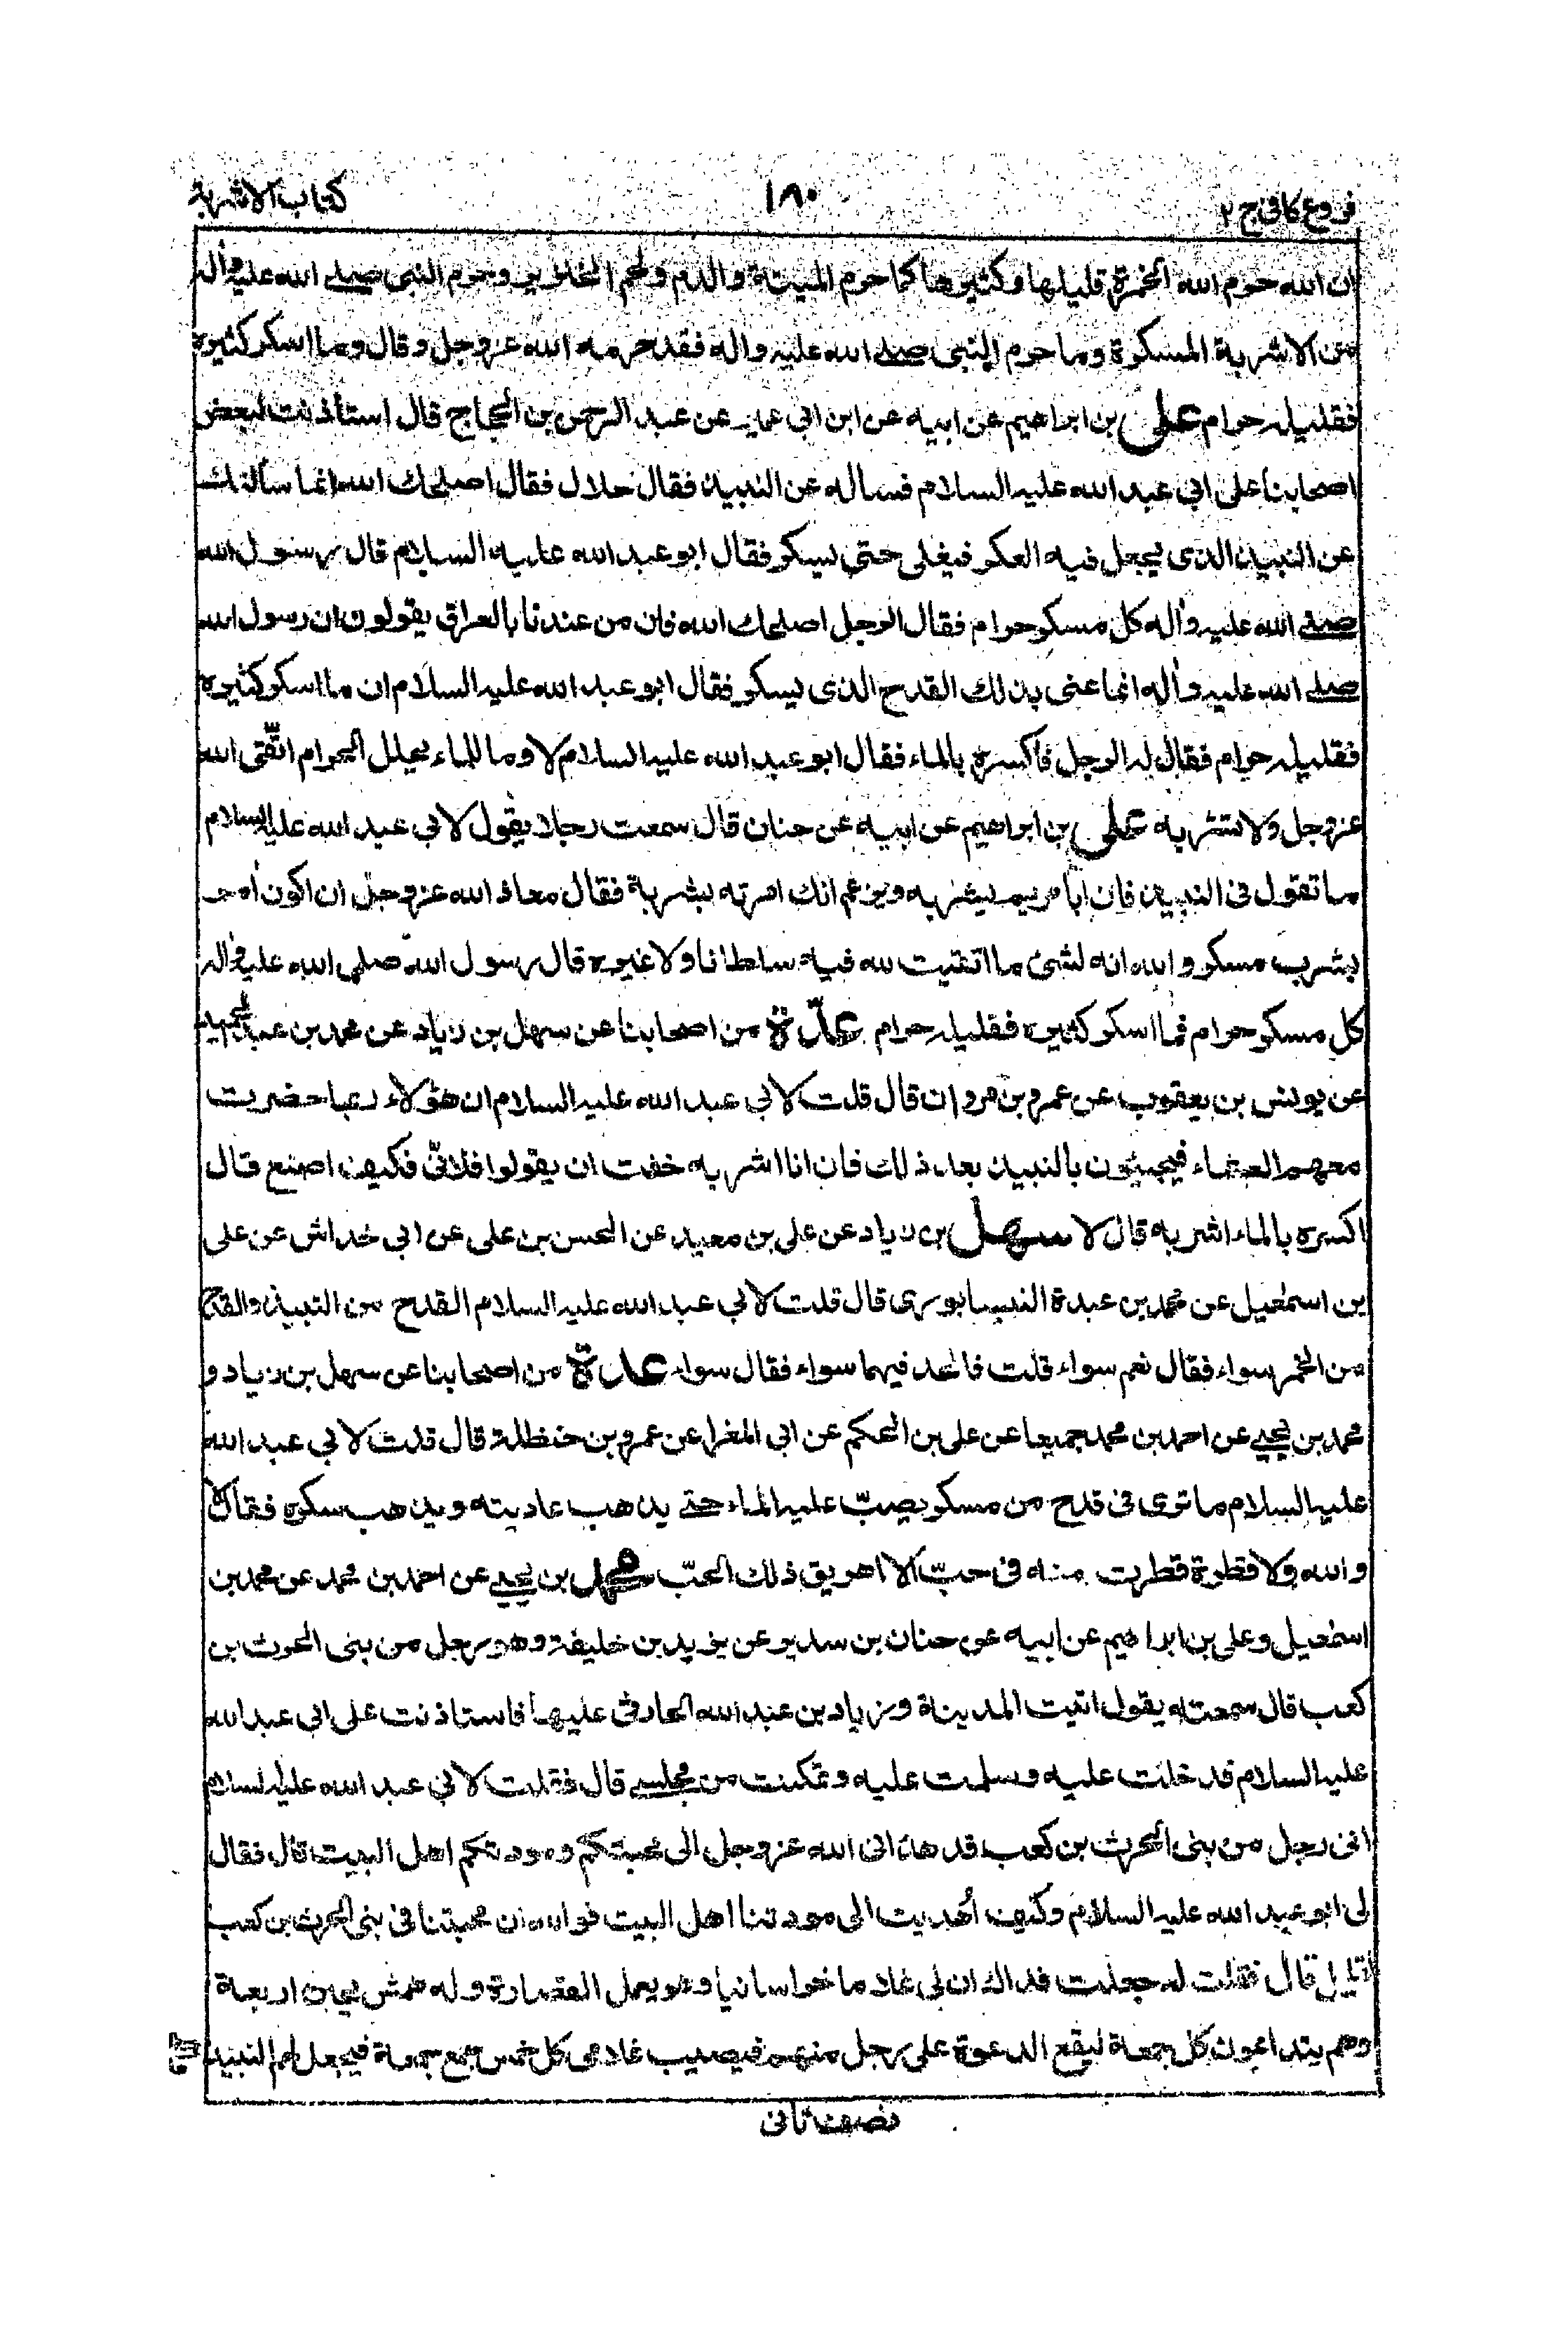 فروع كافى ج ٢
١٨٠
كتاب الاشربة
ان الله حرم الله الخمرة قليلها وكثيرها كما حرم الميتة والدم ولحم الخنزير وحرم النبى صلى الله عليه وآله
من الاشربة المسكرة وما حرم النبى صلى الله عليه واله فقد حرمه الله عزوجل وقال وما اسكر كثيره
فقليله حرام على بن ابراهيم عن ابيه عن ابن ابى عمير عن عبد الرحمن بن الحجاج قال استأذنت لبعض
اصحابنا على ابى عبد الله عليه السلام فساله عن النبيذ فقال حلال فقال اصلحك الله انما سألتك
عن النبيذ الذى يجعل فيه العكر فيغلى حتى يسكر فقال ابو عبد الله عليه السلام قال رسول الله
صلى الله عليه وآله كل مسكر حرام فقال الرجل اصلحك الله فان من عندنا بالعراق يقولون ان رسول الله
صلى الله عليه وآله انما عنى بذلك القدح الذى يسكر فقال ابو عبد الله عليه السلام ان ما اسكر كثيره
فقليله حرام فقال له الرجل فاكسره بالماء فقال ابو عبد الله عليه السلام لا وما للماء يحلل الحرام اتّقى الله
عزوجل ولا تشربه على بن ابراهيم عن ابيه عن حنان قال سمعت رجلا يقول لابى عبد الله عليه السلام
ما تقول فى النبيذ فان ابا مريم يشربه ويزعم انك امرته بشربة فقال معاذ الله عزوجل ان اكون آمر
بشرب مسكر والله انه لشئ ما اتقيت لله فيه سلطانا ولا غيره قال رسول الله صلى الله عليه وآله
كل مسكر حرام فما اسكر كثيره فقليله حرام عدّة من اصحابنا عن سهل بن زياد عن محمد بن عبد الحميد
عن يونس بن يعقوب عن عمرو بن مروان قال قلت لابى عبد الله عليه السلام ان هؤلاء ربما حضرت
معهم العشاء فيجيئون بالنبيذ بعد ذلك فان انا اشربه خفت ان يقولوا فلانىّ فكيف اصنع قال
اكسره بالماء اشربه قال لا سهل بن زياد عن على بن معبد عن الحسن بن على عن ابى خداش عن على
بن اسمعيل عن محمد بن عبدة النيسابورى قال قلت لابى عبد الله عليه السلام القدح من النبيذ والقدح
من الخمر سواء فقال نعم سواء قلت فالحد فيهما سواء فقال سواء عدّة من اصحابنا عن سهل بن زياد و
محمد بن يحيى عن احمد بن محمد جميعا عن على بن الحكم عن ابى المغرا عن عمرو بن حنظلة قال قلت لابى عبد الله
عليه السلام ما ترى فى قدح من مسكر يصبّ عليه الماء حتى يذهب عاديته ويذهب سكره فقال لا
والله ولا قطرة قطرت منه فى حبّ الا اهريق ذلك الحبّ بن يحيى عن احمد بن محمد عن محمد بن
اسمعيل وعلى بن ابراهيم عن ابيه عن حنان بن سدير عن يزيد بن خليفة وهو رجل من بنى الحرث بن
كعب قال سمعته يقول اتيت المدينة وزياد بن عبد الله الحارثى عليها فاستاذنت على ابى عبد الله
عليه السلام فدخلت عليه وسلمت عليه وتمكنت من مجلسى قال فقلت لابى عبد الله عليه السلام
انى رجل من بنى الحرث بن كعب قد هدانى الله عزوجل الى محبتكم ومودتكم اهل البيت قال فقال
لى ابو عبد الله عليه السلام وكيف اُهديت الى مودتنا اهل البيت فوالله ان محبتنا فى بنى الحرث بن كعب
لقليل قال فقلت له جعلت فداك ان لى غلاما خراسانيا وهو يعمل القصارة وله همشهريجون اربعة
وهم يتداعون كل جمعة ليقع الدعوة على رجل منهم فيصيب غلامى كل خمس جمع جمعة فيجعل لهم النبيذ
نصف ثانى